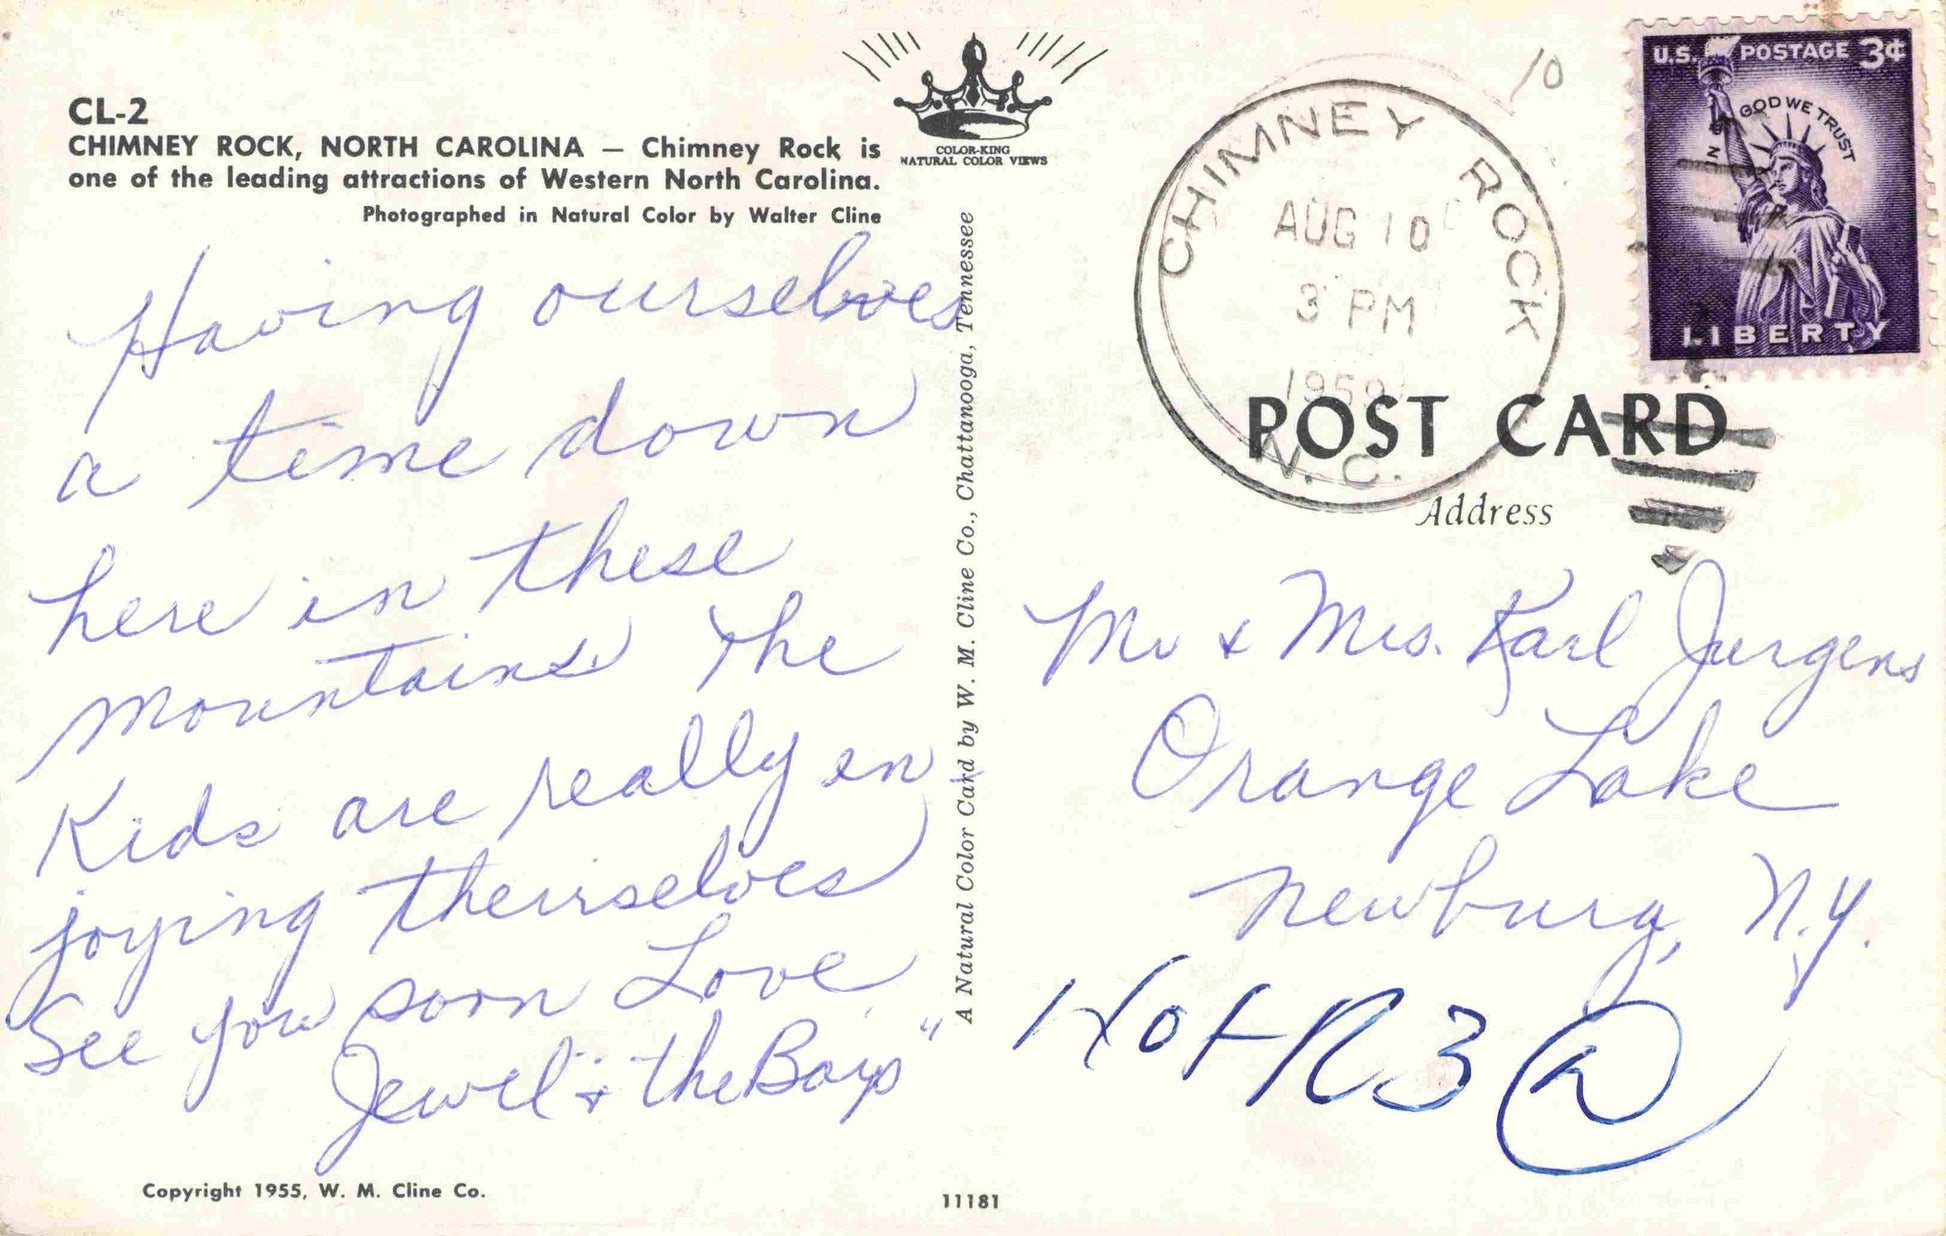 CL-2
CHIMNEY ROCK, NORTH CAROLINA — Chimney Rock is
one of the leading attractions of Western North Carolina.
Photographed in Natural Color by Walter Cline
COLOR-KING
NATURAL COLOR VIEWS
Having ourselves
a time down
here in these
mountains The
Kids are really en
joying theirselves
See you soon Love
Jewel & the Boys"
Copyright 1955, W. M. Cline Co.
A Natural Color Card by W. M. Cline Co., Chattanooga, Tennessee
11181
10
CHIMNEY ROCK
AUG 10
3 PM
1959
N. C.
U.S. POSTAGE 3¢
IN GOD WE TRUST
LIBERTY
POST CARD
Address
Mr & Mrs. Karl Jurgens
Orange Lake
Newburg, N.Y.
Not R3